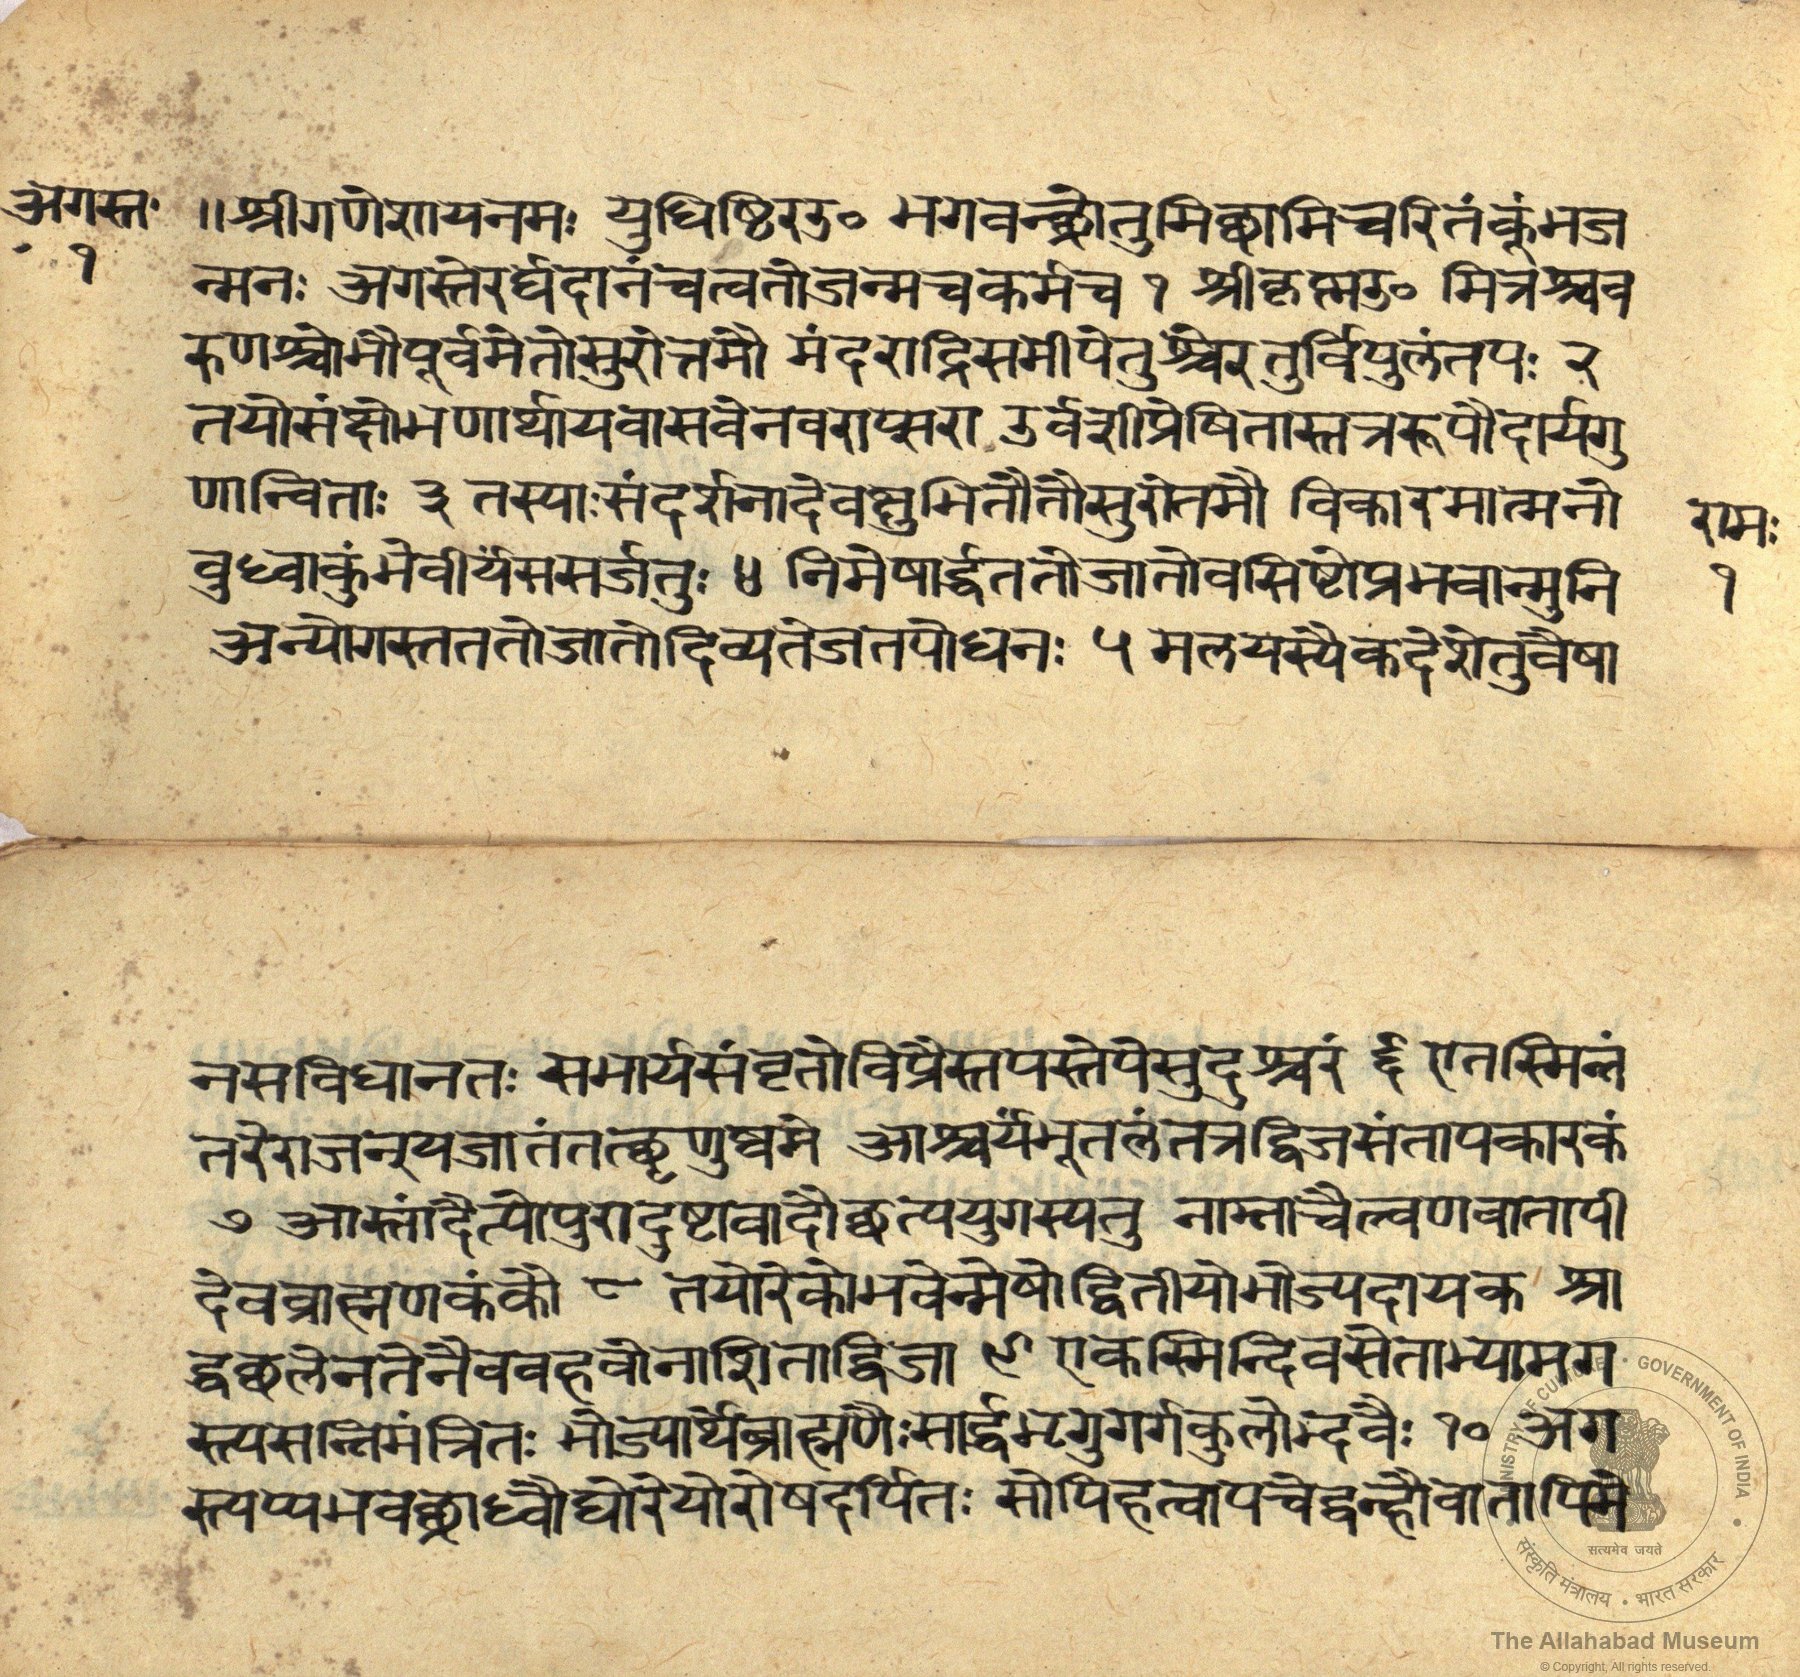 अगस्तः
१
॥श्रीगणेशायनमः युधिष्ठिरउ० भगवन्छ्रोतुमिच्छामिचरितंकूंभज
न्मनः अगस्तेरर्घदानंचत्वतोजन्मचकर्मच १ श्रीकृष्मउ० मित्रश्चव
रुणश्चोभौपूर्वमेतोसुरोत्तमौ मंदराद्रिसमीपेतुश्चेरतुर्विपुलंतपः २
तयोसंक्षोभणार्थायवासवेनवराप्सरा उर्वशीप्रेषितास्तत्ररूपौदार्यगु
णान्विताः ३ तस्याःसंदर्शनादेवक्षुभितौतौसुरोतमौ विकारमात्मनो
वुध्वाकुंभेवीर्यंससर्जतुः ४ निमेषार्द्धततोजातोवसिष्टोप्रभवान्मुनि
अन्योगस्तततोजातोदिव्यतेजतपोधनः ५ मलयस्यैकदेशेतुवैषा
रामः
१
नसविधानतः सभार्यसंवृतोविप्रैस्तपस्तेपेसुदुश्चरं ६ एतस्मिन्तं
तरेराजन्पजातंतत्छृणुष्वमे आश्चर्यंभूतलंतत्रद्विजसंतापकारकं
७ आस्तांदैत्योपुरादुष्टावादौच्छत्पयुगस्यतु नाम्नाचैल्वणवातापी
देवव्राह्मणकंकौ ८ तयोरेकोभवेन्मेषोद्वितीयोभोज्यदायक श्रा
द्धच्छलेनतेनैववहवोनाशिताद्विजा ९ एकस्मिन्दिवसेताभ्यामग
स्त्यसन्निमंत्रितः भोज्यार्थंब्राह्मणैःसार्द्धंभृगुगर्गकुलोद्भवैः १० अग
स्त्यप्यभवच्छ्राध्वौघोरेयोरोषदर्पितः सोपिहत्वापचेद्वन्हौवातापिमे
MINISTRY OF CULTURE • GOVERNMENT OF INDIA
सत्यमेव जयते
संस्कृति मंत्रालय • भारत सरकार
The Allahabad Museum
© Copyright, All rights reserved.